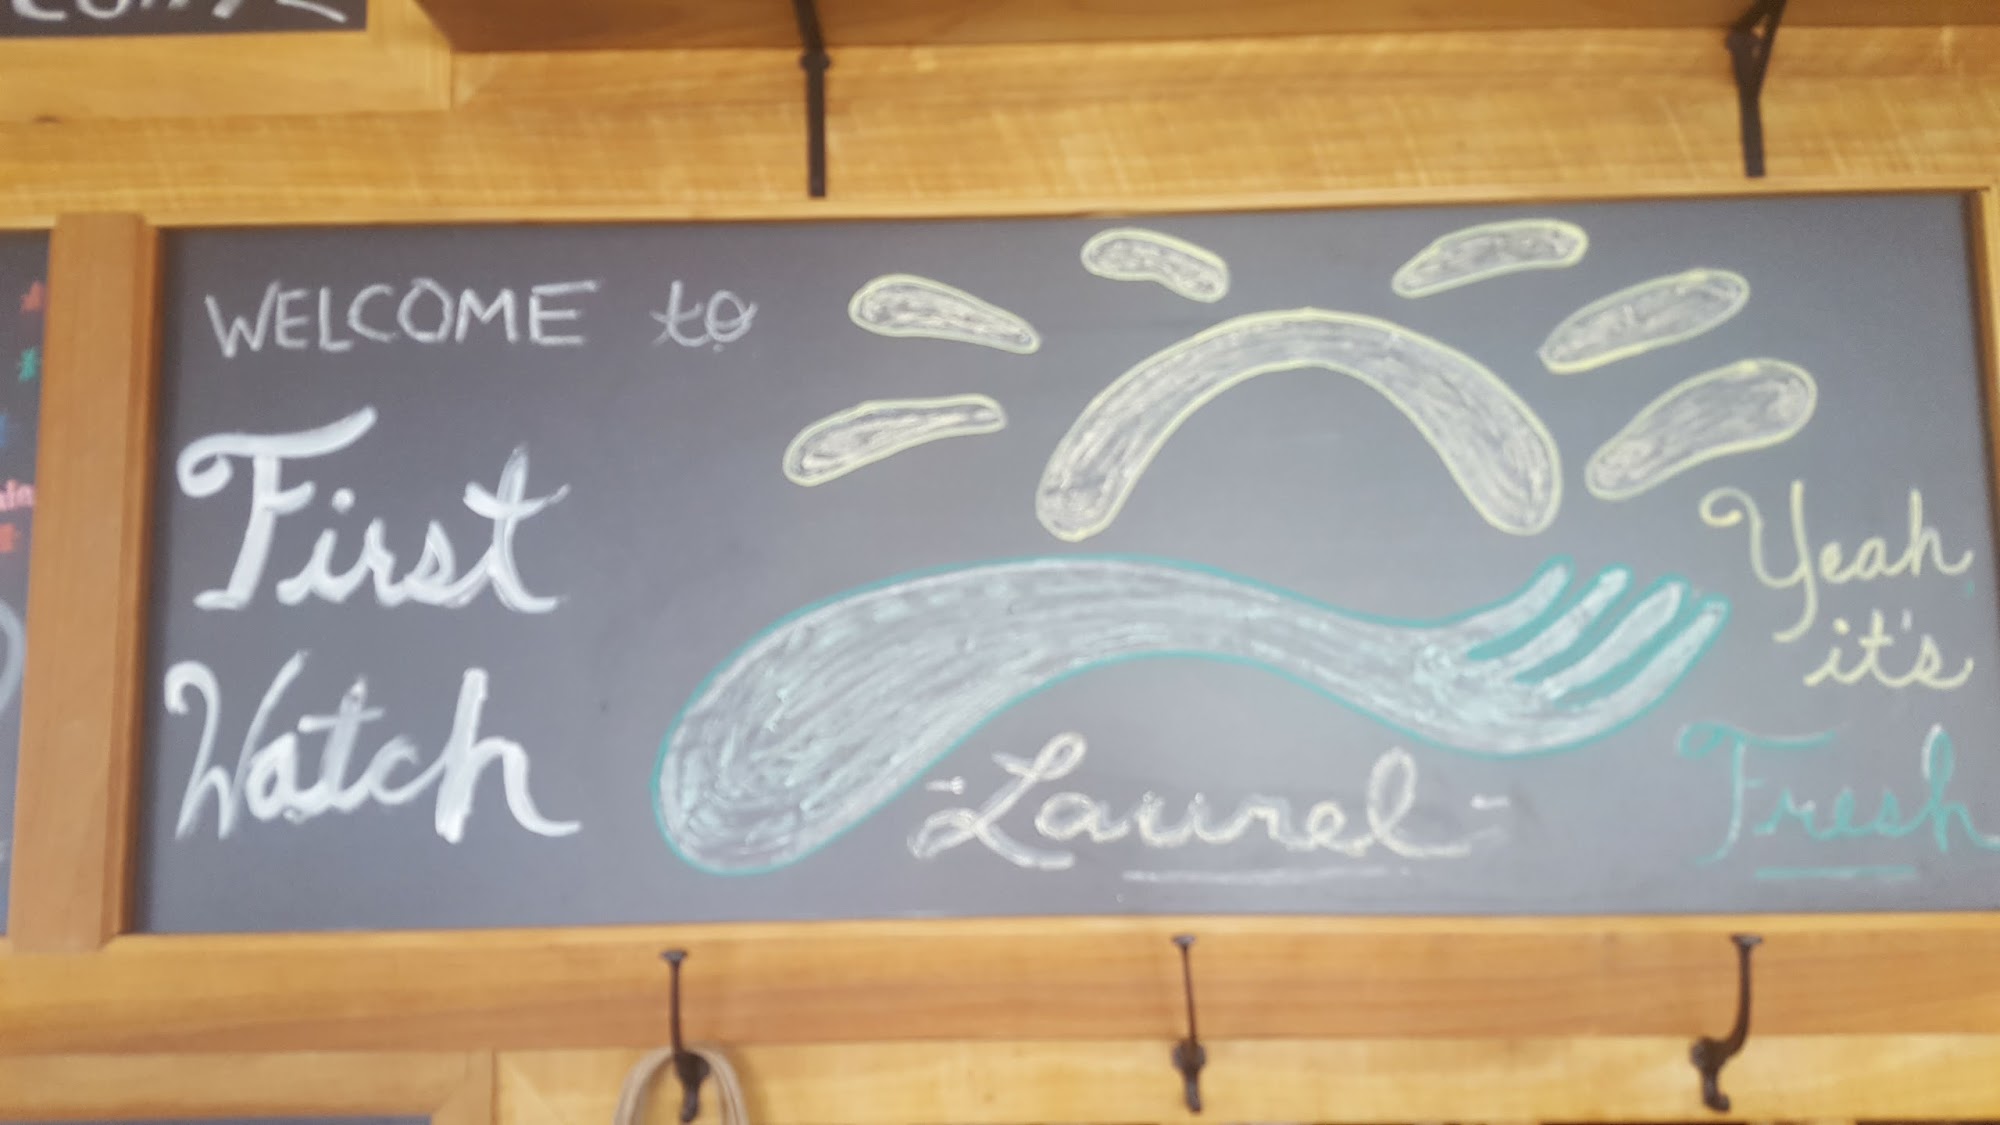 WELCOME to
First
Watch
-Laurel-
Yeah
it's
Fresh